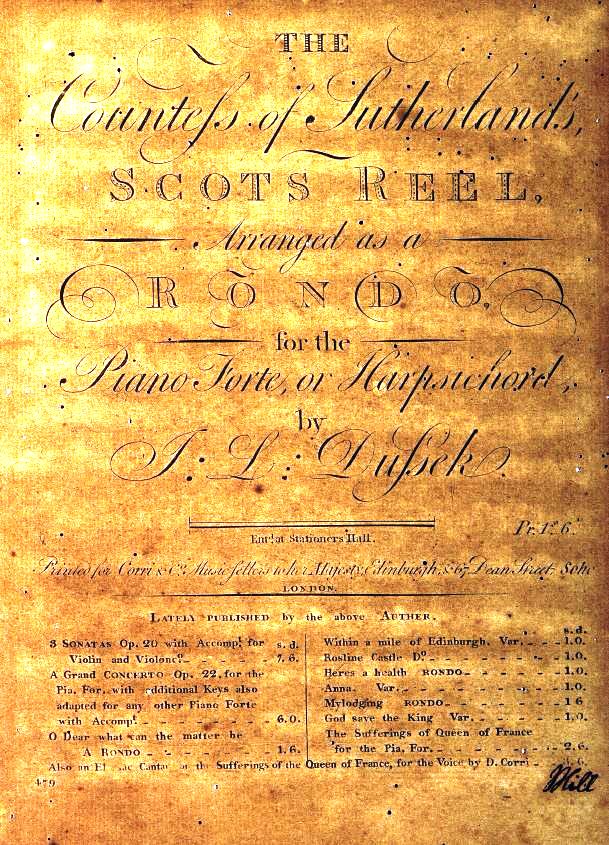 THE
Countess of Sutherland's,
SCOTS REEL,
Arranged as a
RONDO,
for the
Piano Forte, or Harpsichord,
by
J. L. Dussek.
Pr. 1s. 6d.
Ent.d at Stationers Hall.
Printed for Corri & Co. Music sellers to her Majesty, Edinburgh, & 67 Dean Street, Soho
LONDON.
LATELY PUBLISHED by the above AUTHER.
s. d.
3 SONATAS Op. 20 with Accomp.t for
Violin and Violonc.o 7. 6.
A Grand CONCERTO Op. 22, for the
Pia. For. with additional Keys also
adapted for any other Piano Forte
with Accomp.t 6.0.
O Dear what can the matter be
A RONDO 1. 6.
s. d.
Within a mile of Edinburgh. Var. 1.0.
Rosline Castle D.o 1.0.
Heres a health RONDO 1.0.
Anna. Var. 1.0.
Mylodging RONDO 1 6
God save the King Var. 1.0.
The Sufferings of Queen of France
for the Pia, For. 2.6.
Also an the Sufferings of the Queen of France, for the Voice by D. Corri
479
JHill